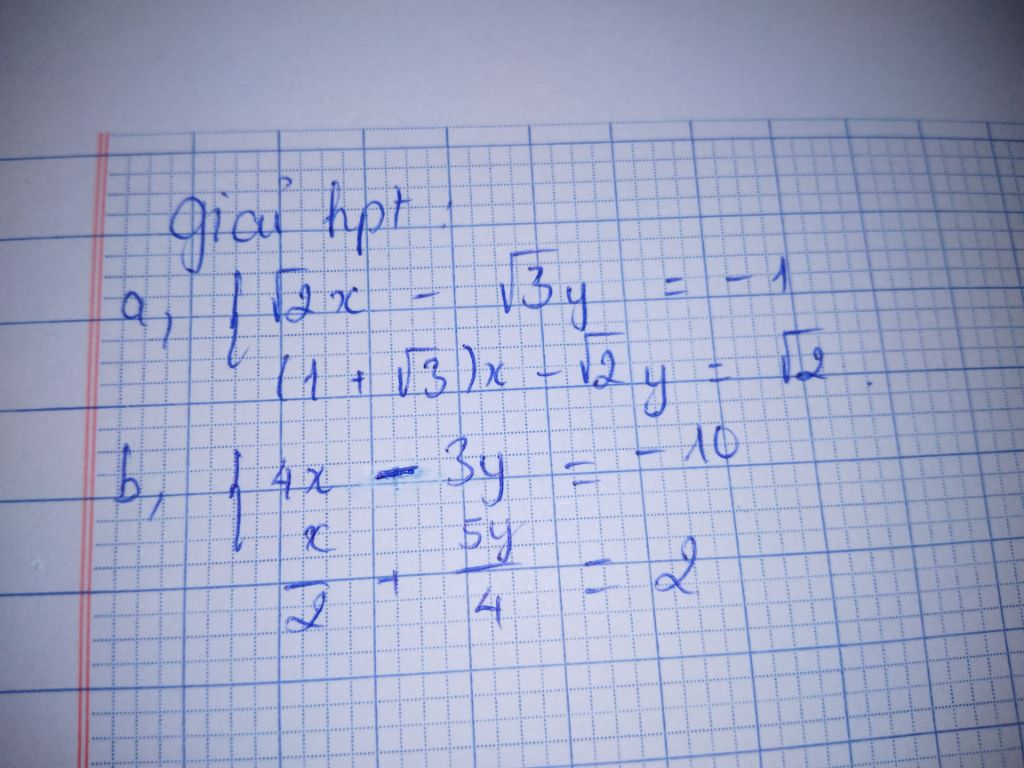 giải hpt:
a, { √2x - √3y = -1
(1 + √3)x - √2y = √2.
b, { 4x - 3y = -10
x/2 + 5y/4 = 2